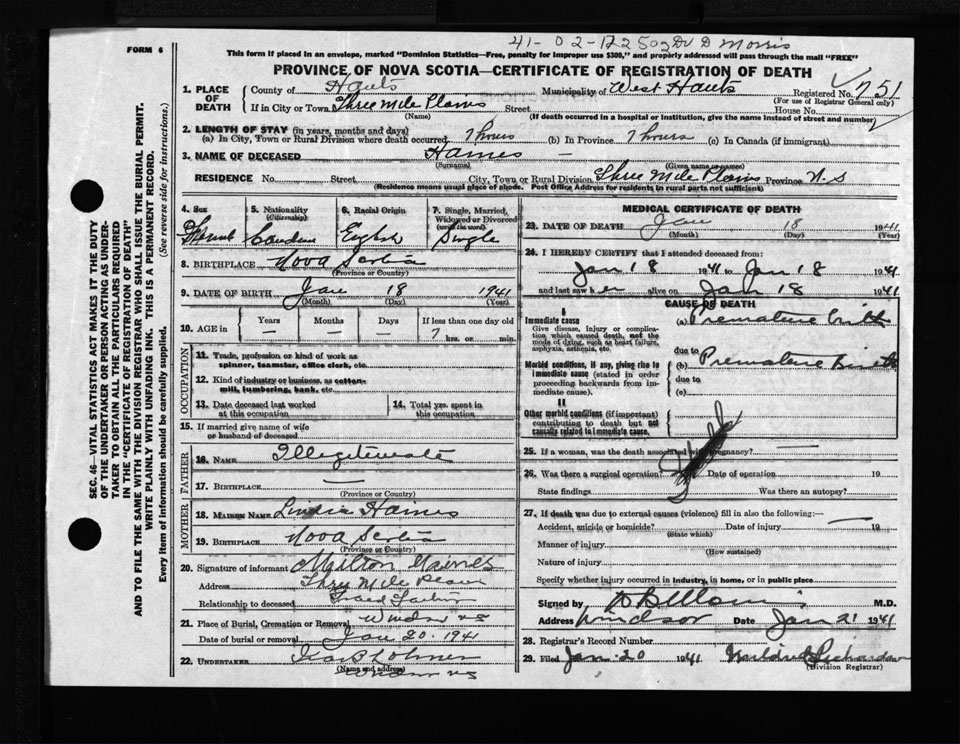 FORM 6
41-02-12250 Dr D Morris
This form if placed in an envelope, marked "Dominion Statistics—Free, penalty for improper use $300," and properly addressed will pass through the mail "FREE"
PROVINCE OF NOVA SCOTIA—CERTIFICATE OF REGISTRATION OF DEATH
1. PLACE OF DEATH
County of Hants Municipality of West Hants Registered No. 751
(For use of Registrar General only)
If in City or Town Three Mile Plains Street House No.
(Name) (If death occurred in a hospital or institution, give the name instead of street and number)
2. LENGTH OF STAY (in years, months and days)
(a) In City, Town or Rural Division where death occurred 7 hours (b) In Province 7 hours (c) In Canada (if immigrant)
3. NAME OF DECEASED Haines —
(Surname) (Given name or names)
RESIDENCE No. Street City, Town or Rural Division Three Mile Plains Province N.S
(Residence means usual place of abode. Post Office Address for residents in rural parts not sufficient)
4. Sex
5. Nationality (Citizenship)
6. Racial Origin
7. Single, Married, Widowed or Divorced (write the word)
Single
8. BIRTHPLACE Nova Scotia
(Province or Country)
9. DATE OF BIRTH Jan 18 1941
(Month) (Day) (Year)
10. AGE in Years Months Days If less than one day old
— — 7 hrs. or min.
OCCUPATION
11. Trade, profession or kind of work as spinner, teamster, office clerk, etc.
12. Kind of industry or business, as cotton-mill, lumbering, bank, etc.
13. Date deceased last worked at this occupation
14. Total yrs. spent in this occupation
15. If married give name of wife or husband of deceased
FATHER
16. NAME Illegitimate
17. BIRTHPLACE —
(Province or Country)
MOTHER
18. MAIDEN NAME Haines
19. BIRTHPLACE Nova Scotia
(Province or Country)
20. Signature of informant Milton Haines
Address Mile
Relationship to deceased
21. Place of Burial, Cremation or Removal Windsor NS
Date of burial or removal Jan 20. 1941
22. UNDERTAKER
(Name and address)
Windsor NS
MEDICAL CERTIFICATE OF DEATH
23. DATE OF DEATH Jan 18 1941
(Month) (Day) (Year)
24. I HEREBY CERTIFY that I attended deceased from:
Jan 18 1941 to Jan 18 1941
and last saw her alive on Jan 18 1941
CAUSE OF DEATH
I
Immediate cause
Give disease, injury or complication which caused death, not the mode of dying, such as heart failure, asphyxia, asthenia, etc.
(a) Premature
due to
Morbid conditions, if any, giving rise to immediate cause (stated in order proceeding backwards from immediate).
(b) Premature Birth
due to
(c)
II
Other morbid conditions (if important) contributing to death but not causally related to immediate cause.
25. If a woman, was the death associated with pregnancy? —
26. Was there a surgical operation? Date of operation 19
State findings Was there an autopsy?
27. If death was due to external causes (violence) fill in also the following:—
Accident, suicide or homicide? Date of injury 19
(State which)
Manner of injury
(How sustained)
Nature of injury
Specify whether injury occurred in industry, in home, or in public place
Signed by M.D.
Address Windsor Date Jan 21 1941
28. Registrar's Record Number
29. Filed Jan. 20 1941 Mildred
(Division Registrar)
SEC. 46—VITAL STATISTICS ACT MAKES IT THE DUTY
OF THE UNDERTAKER OR PERSON ACTING AS UNDER-
TAKER TO OBTAIN ALL THE PARTICULARS REQUIRED
IN THE "CERTIFICATE OF REGISTRATION OF DEATH"
AND TO FILE THE SAME WITH THE DIVISION REGISTRAR WHO SHALL ISSUE THE BURIAL PERMIT.
WRITE PLAINLY WITH UNFADING INK. THIS IS A PERMANENT RECORD.
Every item of information should be carefully supplied. (See reverse side for instructions.)